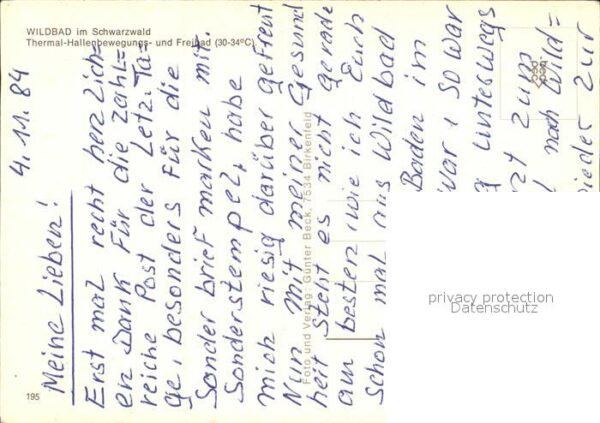 WILDBAD im Schwarzwald
Thermal-Hallenbewegungs- und Freibad (30-34°C)
4. 11. 84
Meine Lieben!
Erst mal recht herzlich=
en Dank für die zahl=
reiche Post der Letz. Ta=
ge, besonders für die
Sonder brief marken mit.
Sonderstempel, habe
mich riesig darüber gefreut
Nun mit meiner Gesund
heit steht es nicht gerade
am besten, wie ich Euch
schon mal aus Wildbad
Baden im
war, so war
unterwegs
zum
nach Wild=
wieder zur
Foto und Verlag: Günter Beck, 7534 Birkenfeld
195
privacy protection
Datenschutz